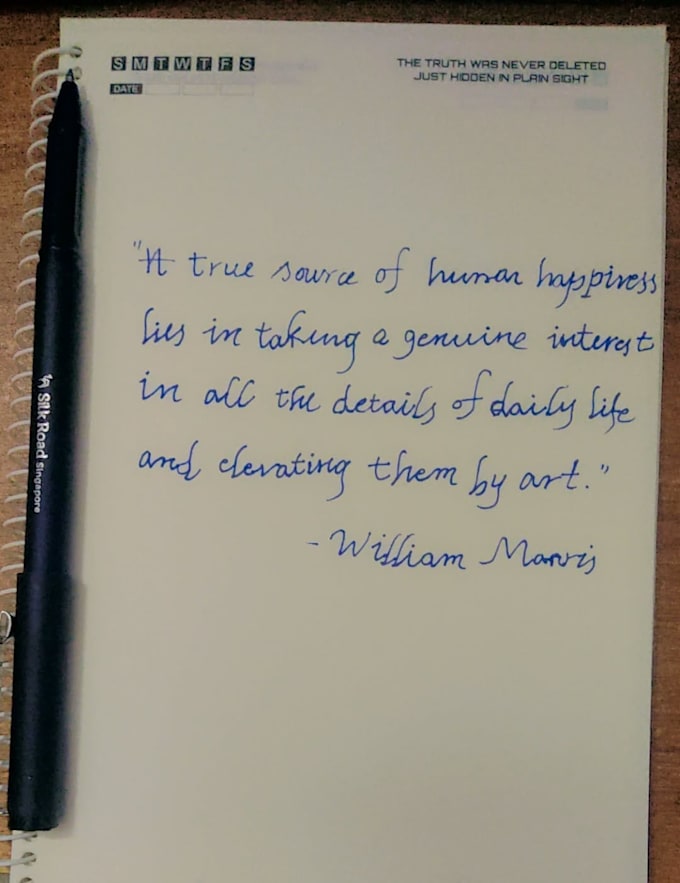 S M T W T F S
DATE
THE TRUTH WAS NEVER DELETED
JUST HIDDEN IN PLAIN SIGHT
"A true source of human happiness
lies in taking a genuine interest
in all the details of daily life
and elevating them by art."
- William Morris
Silk Road Singapore